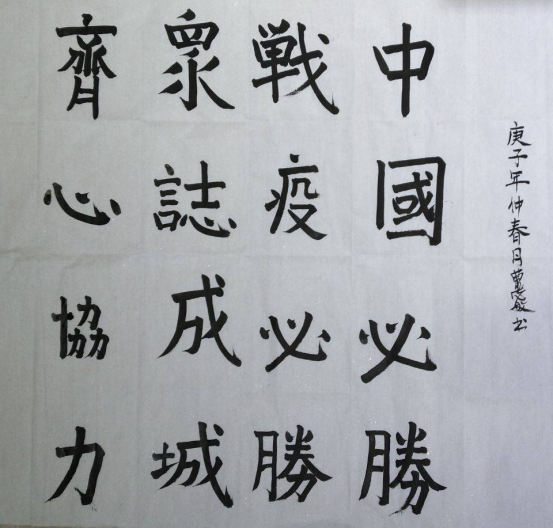 庚子年仲春月书
中國必勝
戦疫必勝
衆誌成城
齊心協力